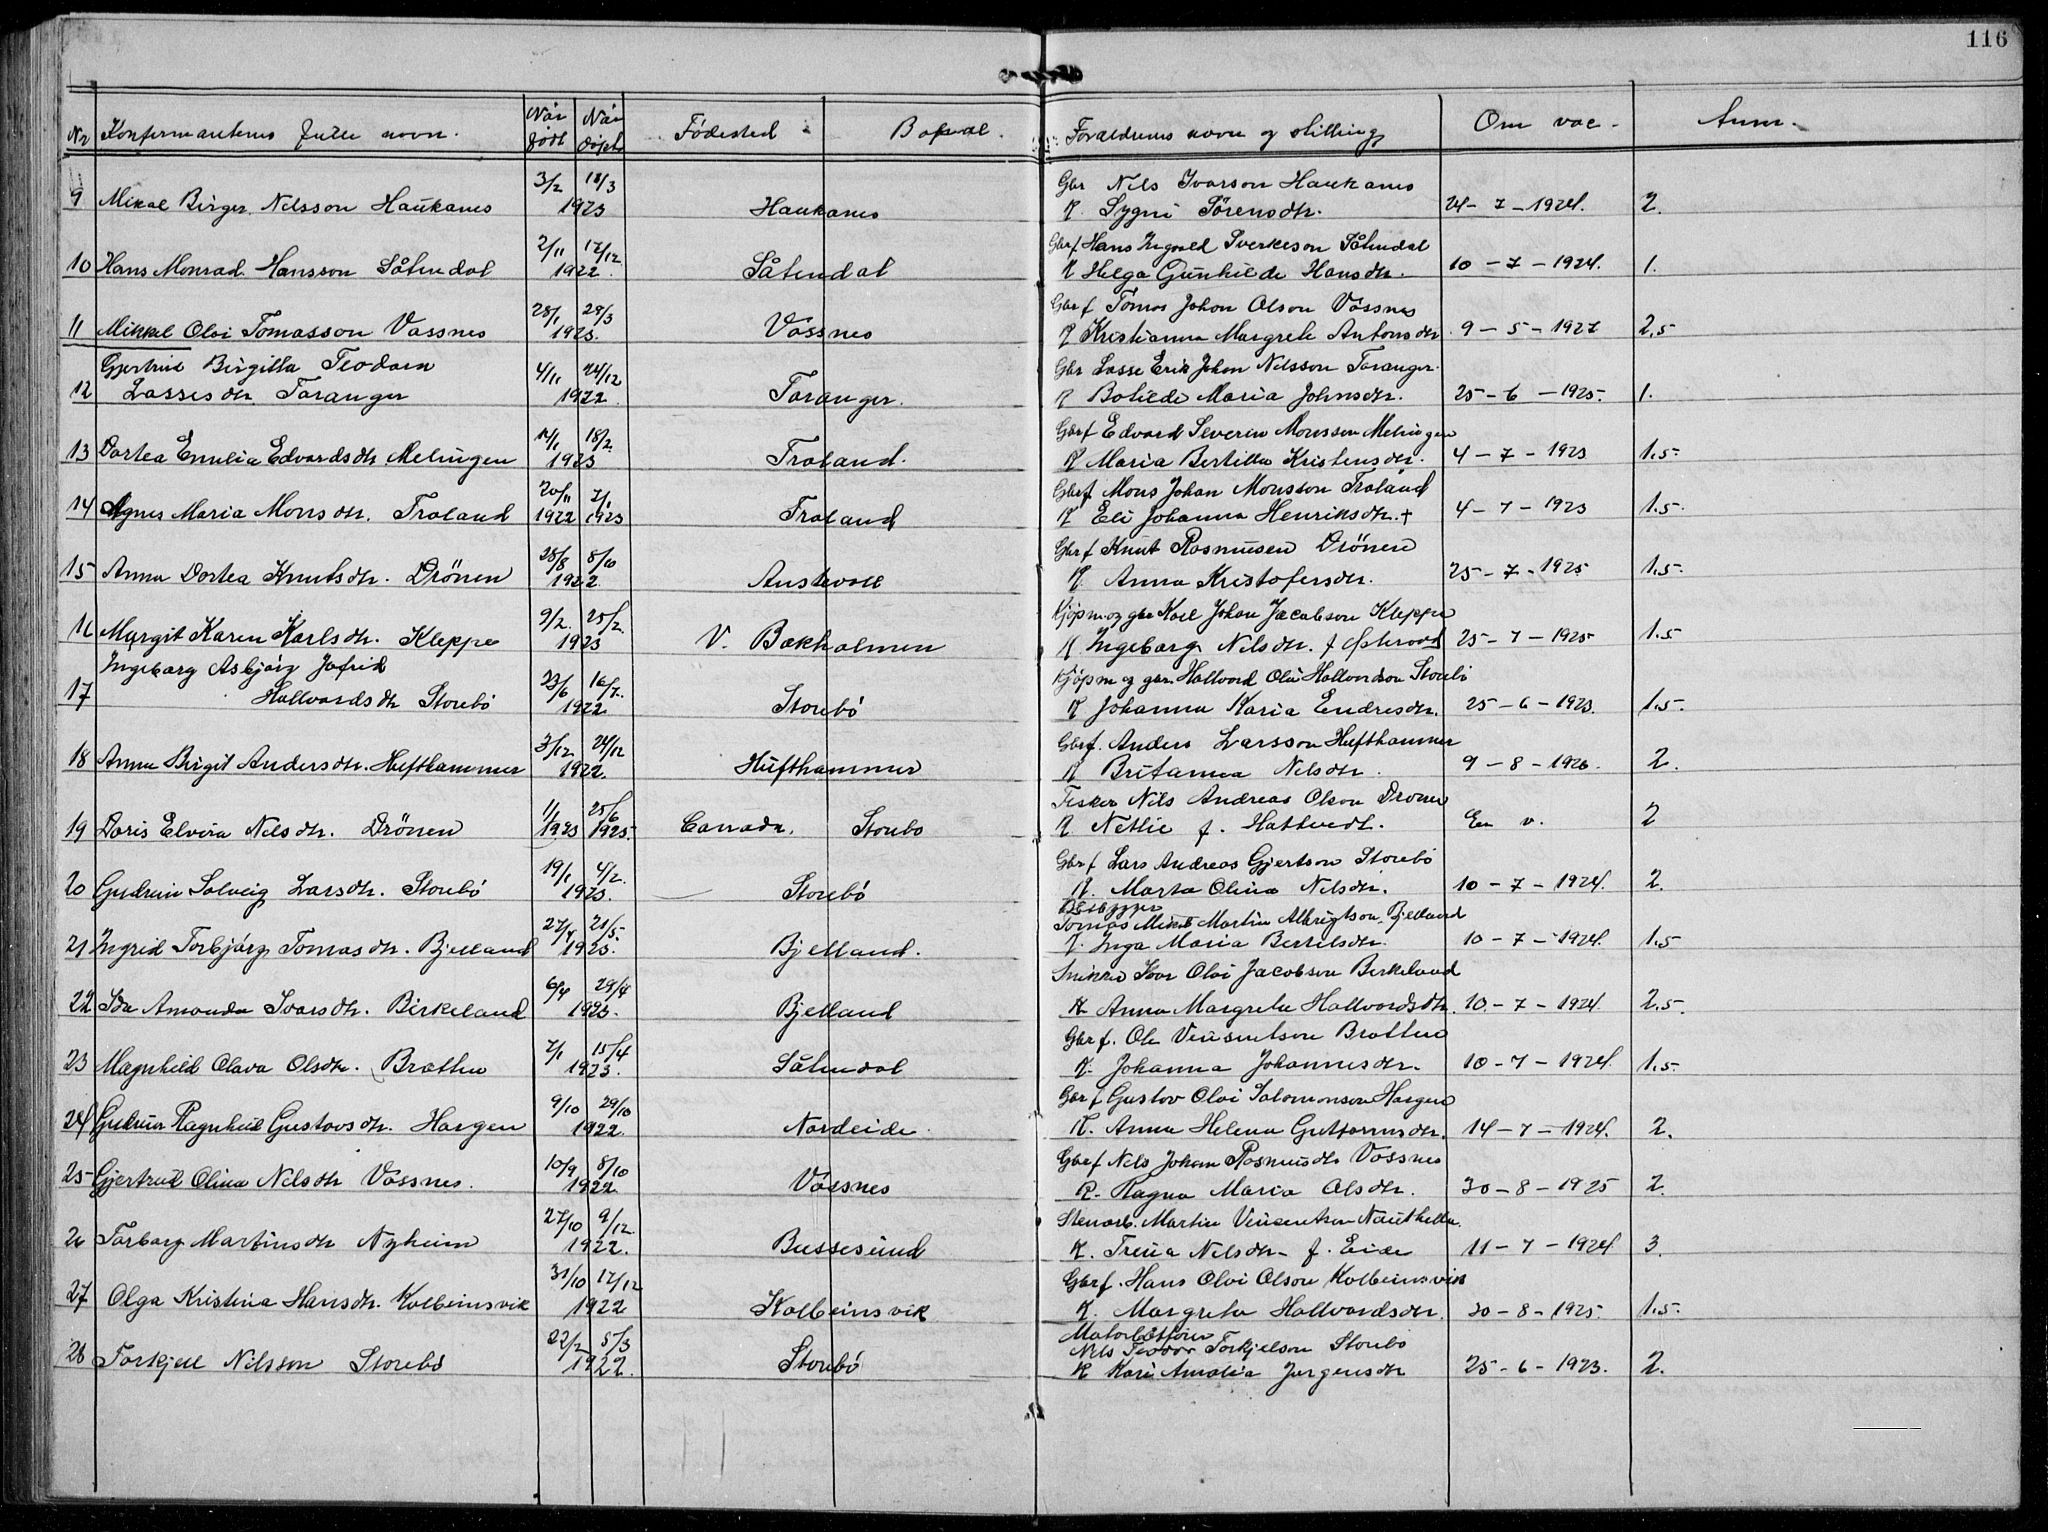 116
Nr Konfirmantens fulle navn. Når født Når døpt Fødested - Bopæl. Forældrenes navn og stilling Om vac - Anm.
9 Mikal Birger Nelsson Haukanes 3/2 18/3 1923 Haukanes Gbr Nils Ivarson Haukanes
K. Sygni Sörensdtr. 24-7-1924. 2.
10 Hans Monrad Hansson Såtendal 2/11 17/12 1922. Såtendal Gbrf Hans Ingvald Sverkeson Såtendal
K Helga Gunhilde Hansdtr. 10-7-1924. 1.
11 Mikkel Olai Tomasson Vassnes 28/1 29/3 1923. Vassnes Gbrf Tomas Johan Olson Vassnes
K Kristianna Margrete Antonsdtr 9-5-1927 2,5
Gjertrud Birgitta Teodora
12 Lassesdtr Taranger 4/11 24/12 1922. Taranger. Gbr Lasse Erik Johan Nilsson Taranger.
K Botilde Maria Johnsdtr. 25-6-1925. 1.
13 Dortea Emilia Edvardsdtr Melingen 14/1 18/2 1923 Troland. Gbrf Edvard Severin Monssen Melingen
K Maria Bertilla Kristensdtr. 4-7-1923 1.5-
14 Agnes Maria Monsdtr. Troland 20/11 7/1 1922 1923 Troland Gbrf Mons Johan Monsson Troland
K Eli Johanna Henriksdtr. + 4-7-1923 1.5.
15 Anna Dortea Knutsdtr. Drönen 28/8 8/10 1922. Austevoll Gbrf Knut Rasmusen Drönen
K. Anna Kristofersdtr. 25-7-1925 1.5-
16 Margit Karen Karlsdtr. Kleppe 9/2. 25/2. 1923 V. Bakholmen Kjöpm og gbr Karl Johan Jacobson Kleppe
K. Ingeborg Nilsdtr. f Østervold 25-7-1925 1.5
Ingeborg Asbjörg Jofrid
17 Hallvardsdtr Storebö 23/6 16/7. 1922 Storebö Kjöpm og gbr. Hallvard Olai Hallvardson Storebö
K Johanna Karia Endresdtr. 25-6-1923. 1.5-
18 Anna Birgit Andersdtr. Hufthammer 3/12 24/12 1922. Hufthammer Gbrf. Anders Larsson Hufthammer
K Britanna Nelsdtr. 9-8-1926. 2.
19 Doris Elvira Nelsdtr. Drönen 1/1 25/6 1923 1925. Canada. Storebö Fisker Nils Andreas Olson Dronen
K Nettie f. Hattvedt. En v. 2
20 Gudrun Solveig Larsdtr. Storebö 19/1 4/2. 1923. Storebö Gbrf Lars Andreas Gjertson Storebö
K. Marta Olina Nilsdtr. 10-7-1924. 2.
21 Ingrid Torbjörg Tomasdtr. Bjelland 27/4 21/5 1923. Bjelland. Tomas Mikal Martin Albrigtson Bjelland
K. Inga Maria Bertilsdtr. 10-7-1924. 1.5
22 Ida Amanda Ivarsdtr. Birkeland 6/4 29/4 1923. Bjelland Snikker Ivar Olai Jacobsen Birkeland
K Anna Margreta Hallvardsdtr. 10-7-1924. 2.5.
23 Magnhild Olava Olsdtr. Brattu 7/1 15/4 1923. Såtendal Gbrf. Ole Vinsentson Brattu
K. Johanna Johannesdtr. 10-7-1924. 1.5.
24 Gudrun Ragnhild Gustavsdtr. Horgen 9/10 29/10 1922. Nordeide. Gbrf Gustav Olai Salomonson Horgen
K. Anna Helena Guttormsdtr. 14-7-1924. 2.
25 Gjertrud Olina Nelsdtr Vassnes. 10/9 8/10 1922. Vassnes Gbrf Nels Johan Rasmusdtr Vassnes
K. Ragna Maria Olsdtr. 30-8-1925 2.
26 Torborg Martinsdtr Nyheim 27/10 9/12 1922. Bussesund Stenarb. Martin Vinsentsen Nauthella.
K. Trina Nilsdtr - f. Eide 11-7-1924 3.
27 Olga Kristina Hansdtr. Kolbeinsvik 31/10 17/12 1922 Kolbeinsvik Gbrf. Hans Olai Olson Kolbeinsvik
K. Margreta Hallvardsdtr. 30-8-1925. 1.5-
28 Torkjell Nilsson Storebö 22/2 5/3 1922. Storebö Nils Teodor Torkjelson Storebö
K Kari Amalia Jørgensdtr 25-6-1923. 2.